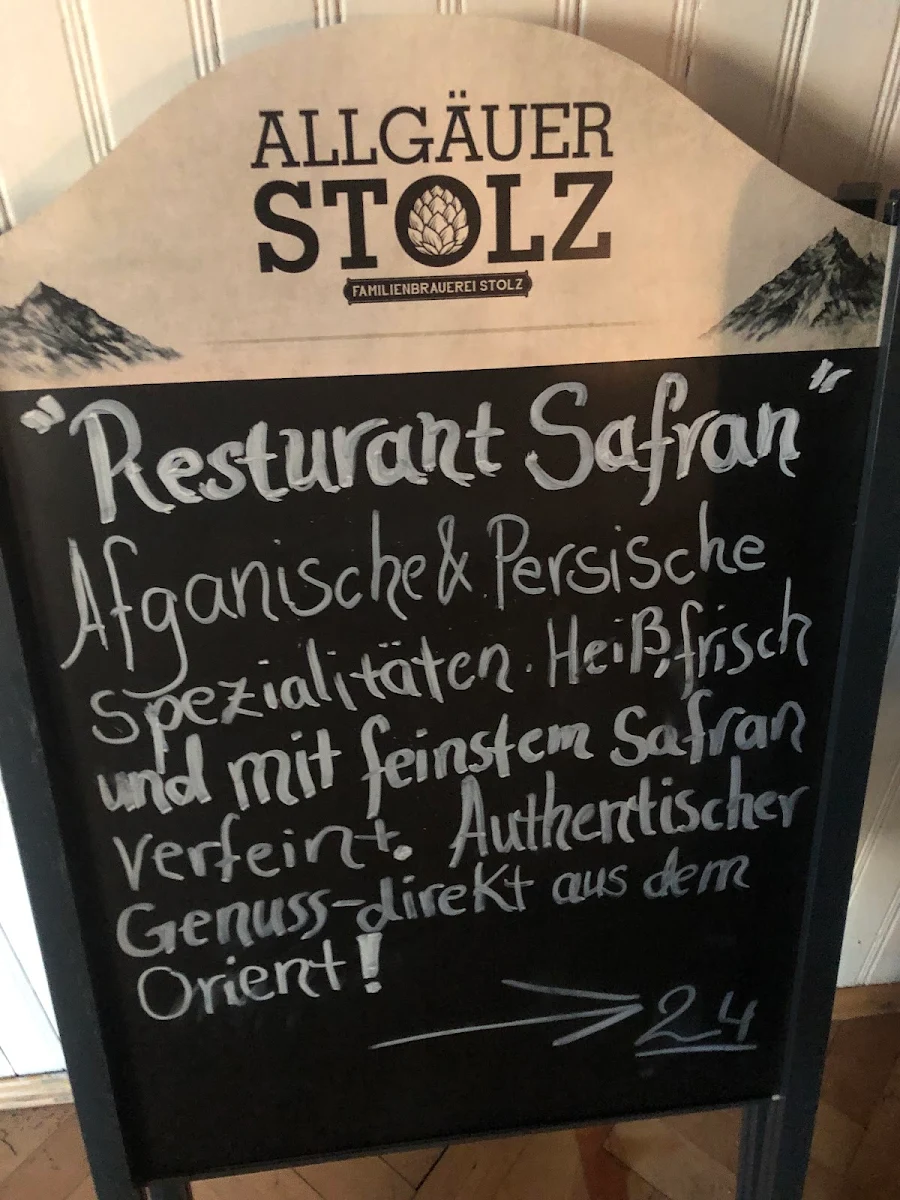 ALLGÄUER
STOLZ
FAMILIENBRAUEREI STOLZ
"Resturant Safran"
Afganische & Persische
spezialitäten. Heiß, frisch
und mit feinstem Safran
verfeint. Authentischer
Genuss-direkt aus dem
Orient!
→ 24